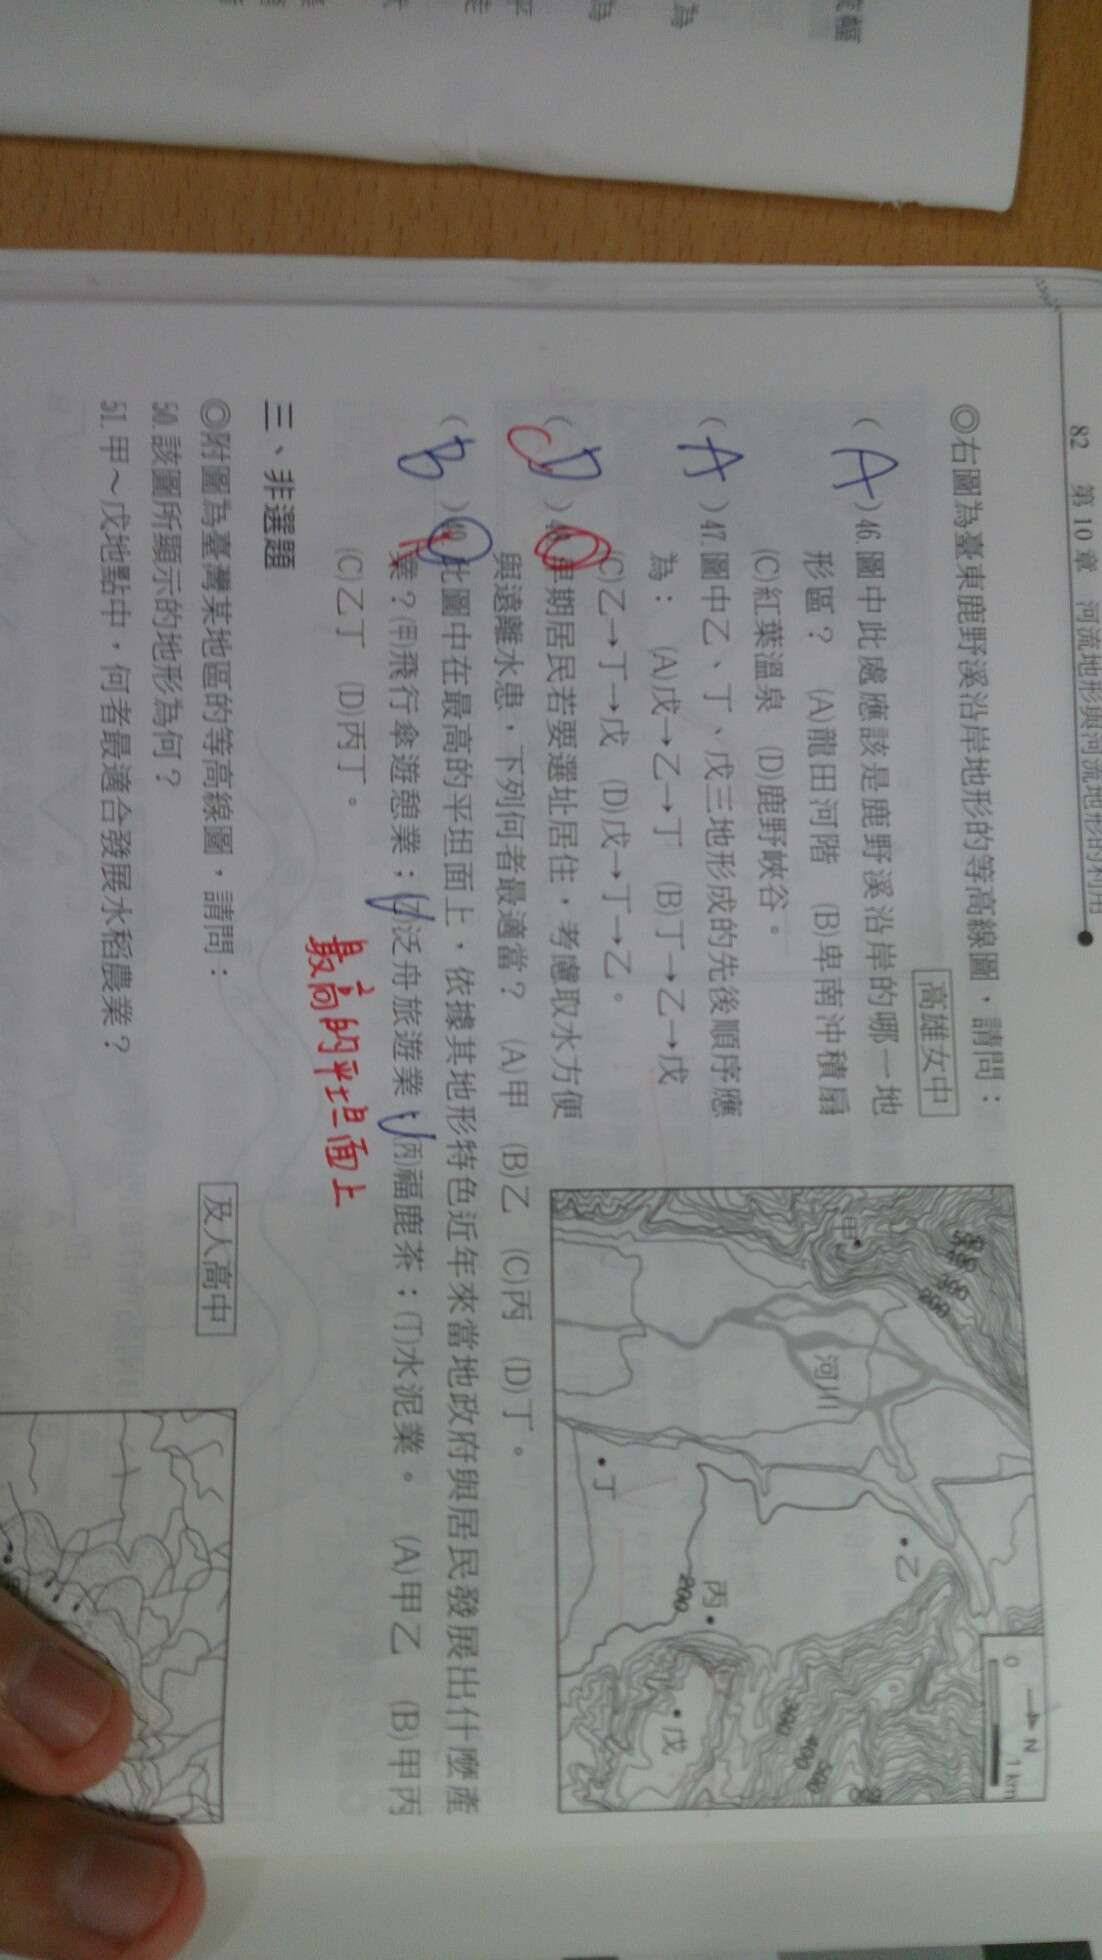 82 第10章 河流地形與河流地形的利用
◎右圖為臺東鹿野溪沿岸地形的等高線圖，請問：
高雄女中
( A )46.圖中此處應該是鹿野溪沿岸的哪一地
形區？ (A)龍田河階 (B)卑南沖積扇
(C)紅葉溫泉 (D)鹿野峽谷。
( A )47.圖中乙、丁、戊三地形成的先後順序應
為： (A)戊→乙→丁 (B)丁→乙→戊
(C)乙→丁→戊 (D)戊→丁→乙。
( D )48.早期居民若要選址居住，考慮取水方便
C
與遠離水患，下列何者最適當？ (A)甲 (B)乙 (C)丙 (D)丁。
( B )49.此圖中在最高的平坦面上，依據其地形特色近年來當地政府與居民發展出什麼產
業？(甲)飛行傘遊憩業；(乙)泛舟旅遊業；(丙)福鹿茶；(丁)水泥業。 (A)甲乙 (B)甲丙
(C)乙丁 (D)丙丁。
最高的平坦面上
500
400
300
200
甲
河川
乙
丙
200
丁
戊
300
400
500
N
0 1 km
三、非選題
◎附圖為臺灣某地區的等高線圖，請問：
及人高中
50.該圖所顯示的地形為何？
51.甲～戊地點中，何者最適合發展水稻農業？